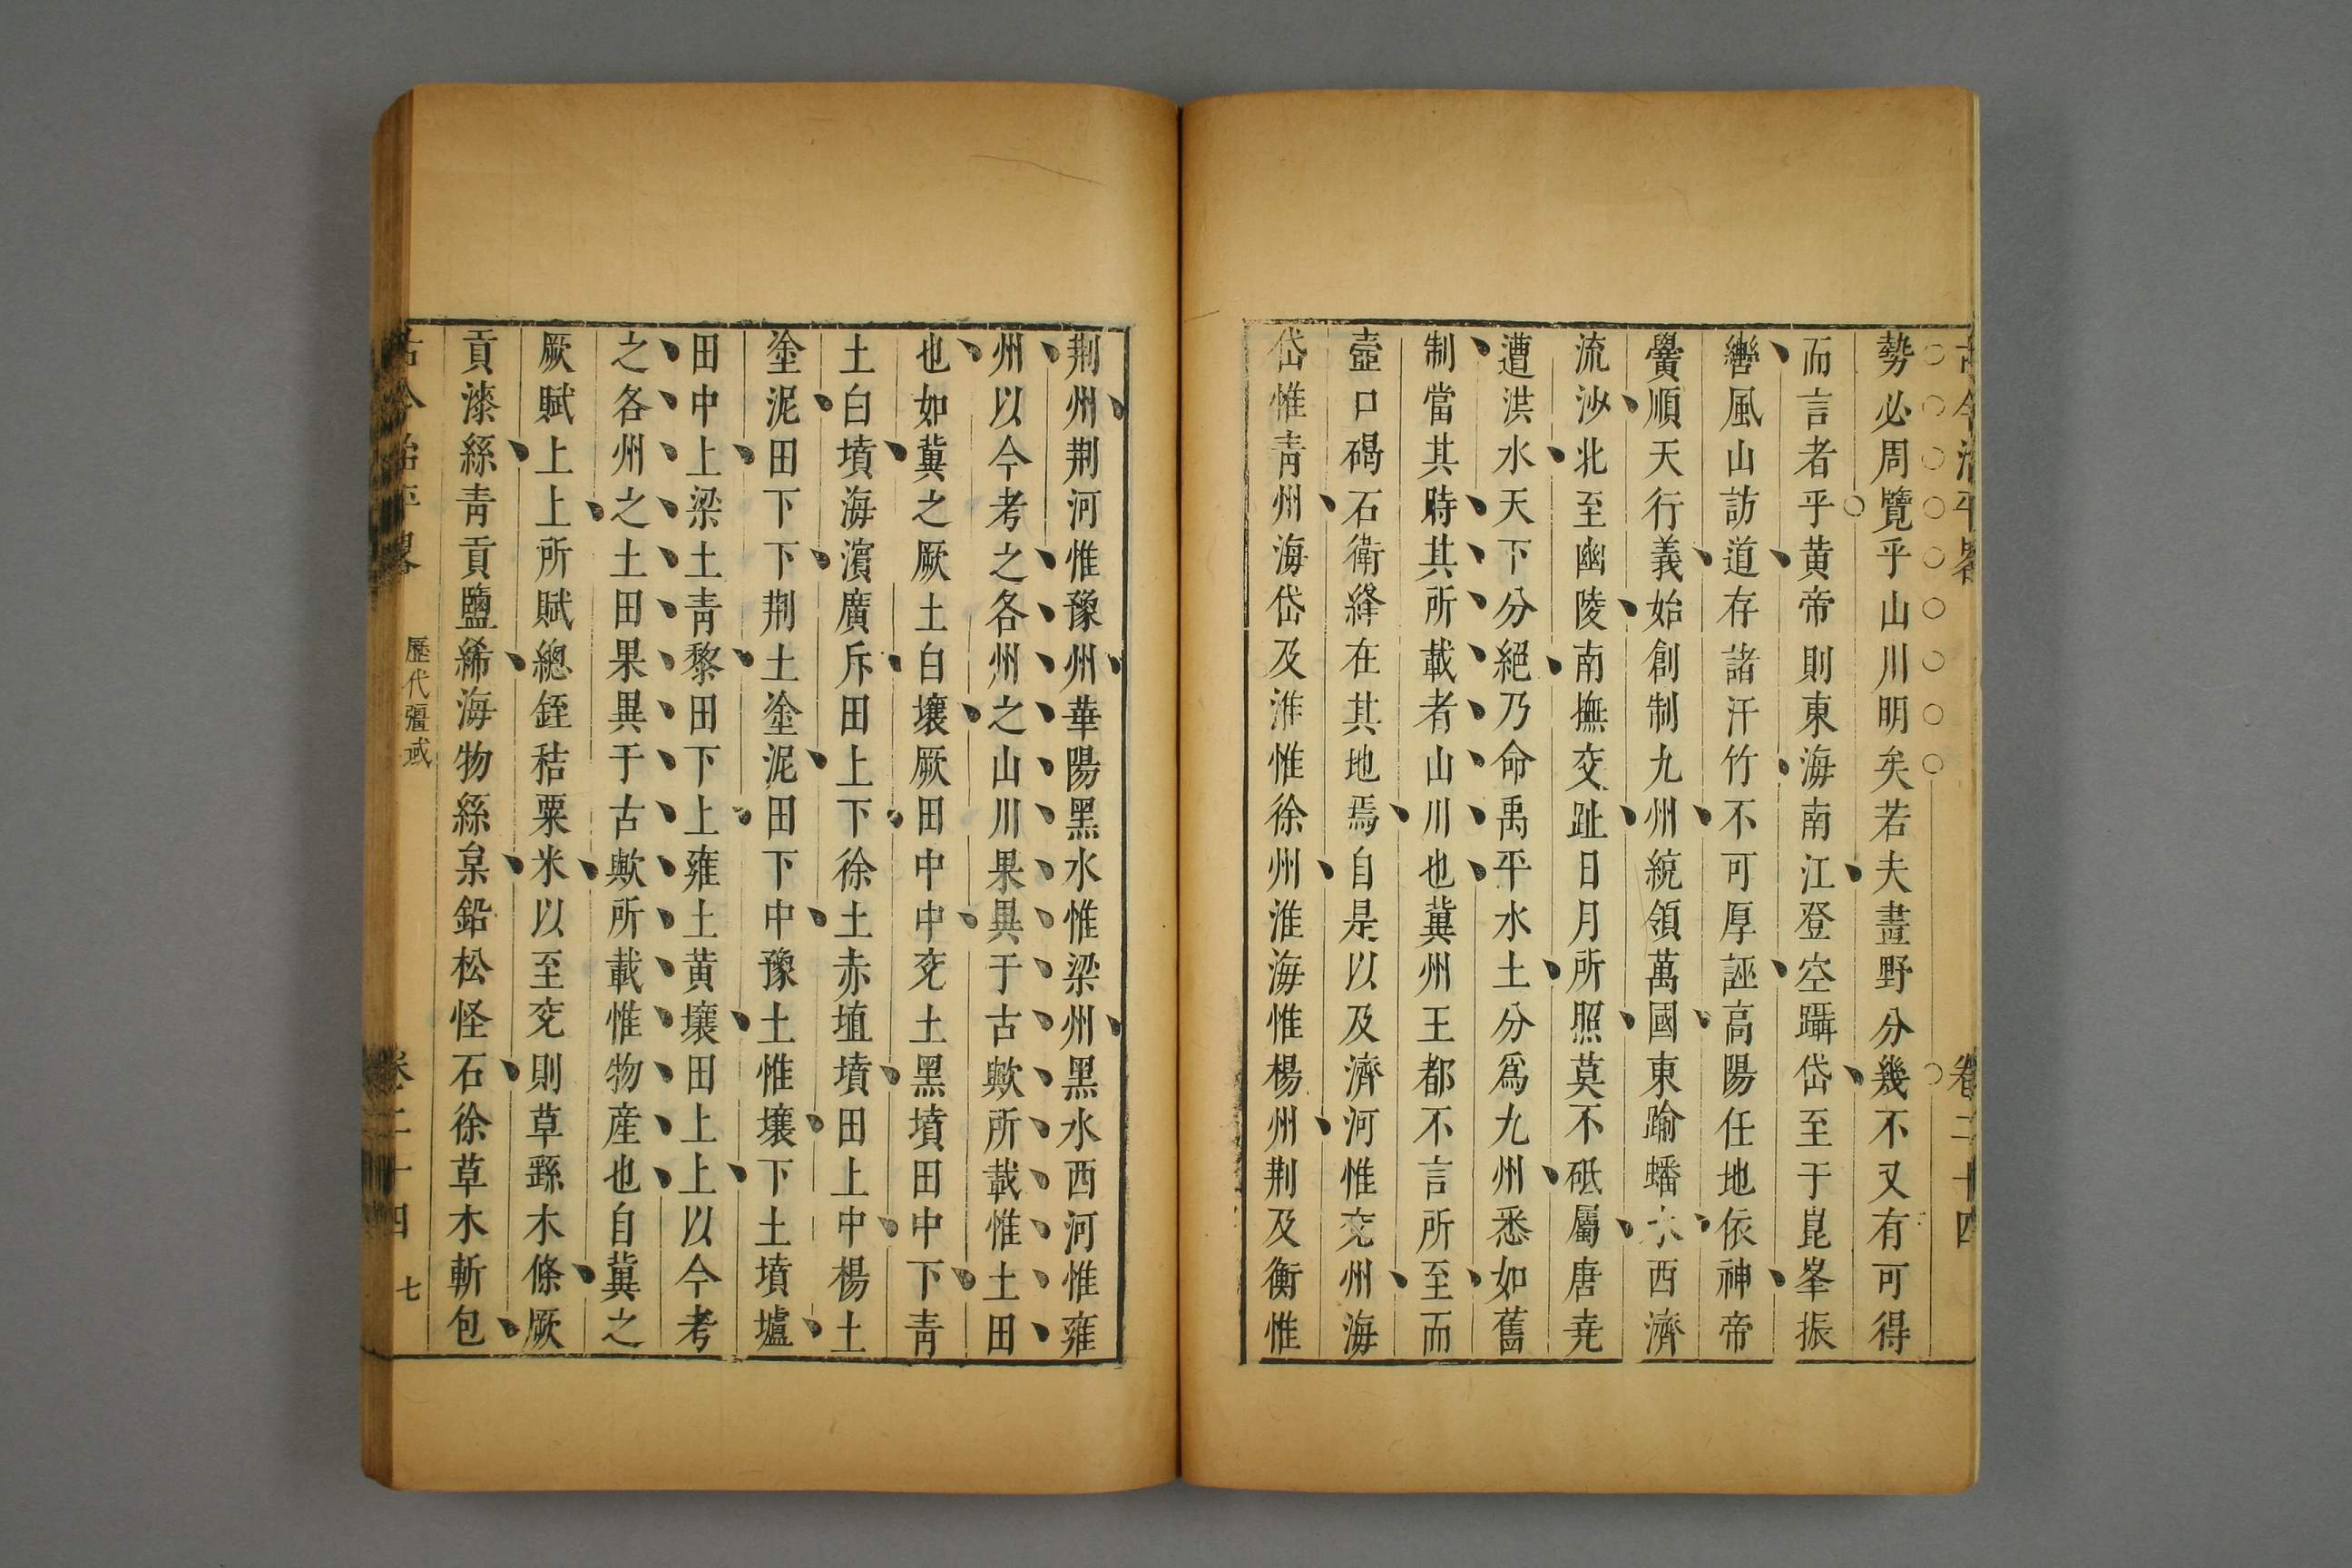 古今治平畧 卷二十四
勢必周覽乎山川明矣若夫畫野分幾不又有可得
而言者乎黃帝則東海南江登空躡岱至于崑峯振
轡風山訪道存諸汗竹不可厚誣高陽任地依神帝
嚳順天行義始創制九州統領萬國東踰蟠木西濟
流沙北至幽陵南撫交趾日月所照莫不砥屬唐堯
遭洪水天下分絕乃命禹平水土分爲九州悉如舊
制當其時其所載者山川也冀州王都不言所至而
壺口碣石衛絳在其地焉自是以及濟河惟兗州海
岱惟青州海岱及淮惟徐州淮海惟楊州荆及衡惟
荆州荆河惟豫州華陽黑水惟梁州黑水西河惟雍
州以今考之各州之山川果異于古歟所載惟土田
也如冀之厥土白壤厥田中中兗土黑墳田中下青
土白墳海濱廣斥田上下徐土赤埴墳田上中楊土
塗泥田下下荆土塗泥田下中豫土惟壤下土墳壚
田中上梁土青黎田下上雍土黃壤田上上以今考
之各州之土田果異于古歟所載惟物産也自冀之
厥賦上上所賦總銍秸粟米以至兗則草繇木條厥
貢漆絲青貢鹽絺海物絲枲鉛松怪石徐草木斬包
古今治平畧 歷代疆域 卷二十四 七